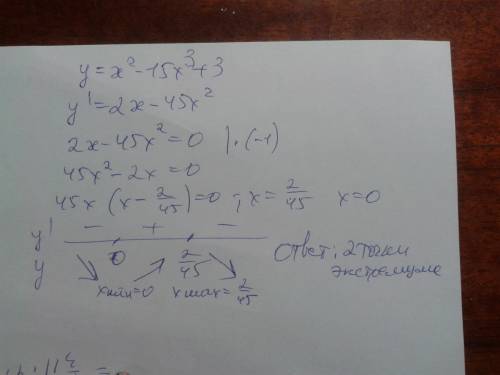 y = x² - 15x³ + 3
y' = 2x - 45x²
2x - 45x² = 0 | · (-1)
45x² - 2x = 0
45x (x - 2/45) = 0 ; x = 2/45 x = 0
y' - + -
y 0 2/45
xмин = 0 xмах = 2/45
Ответ: 2 точки
экстремума